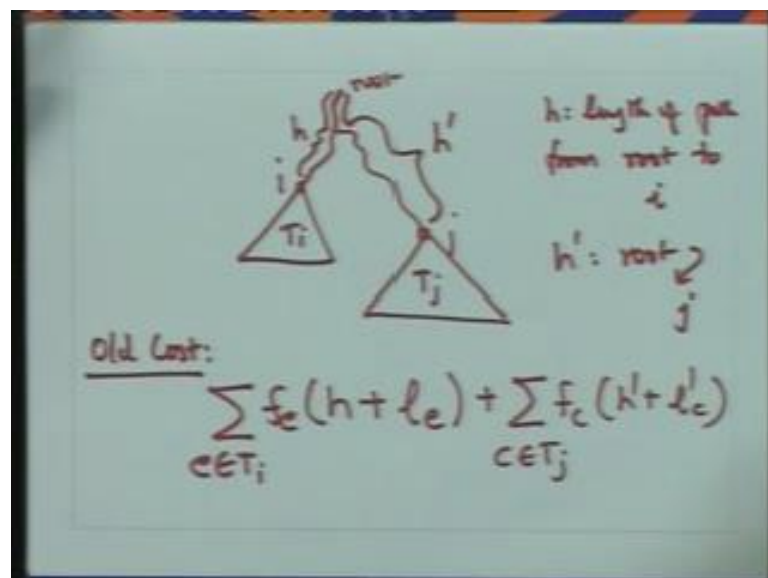 root
h
h'
i
j
Ti
Tj
h: length of path
from root to
i
h': root
j
Old Cost:
∑ fe (h + le) + ∑ fc (h' + l'c)
e∈Ti c∈Tj